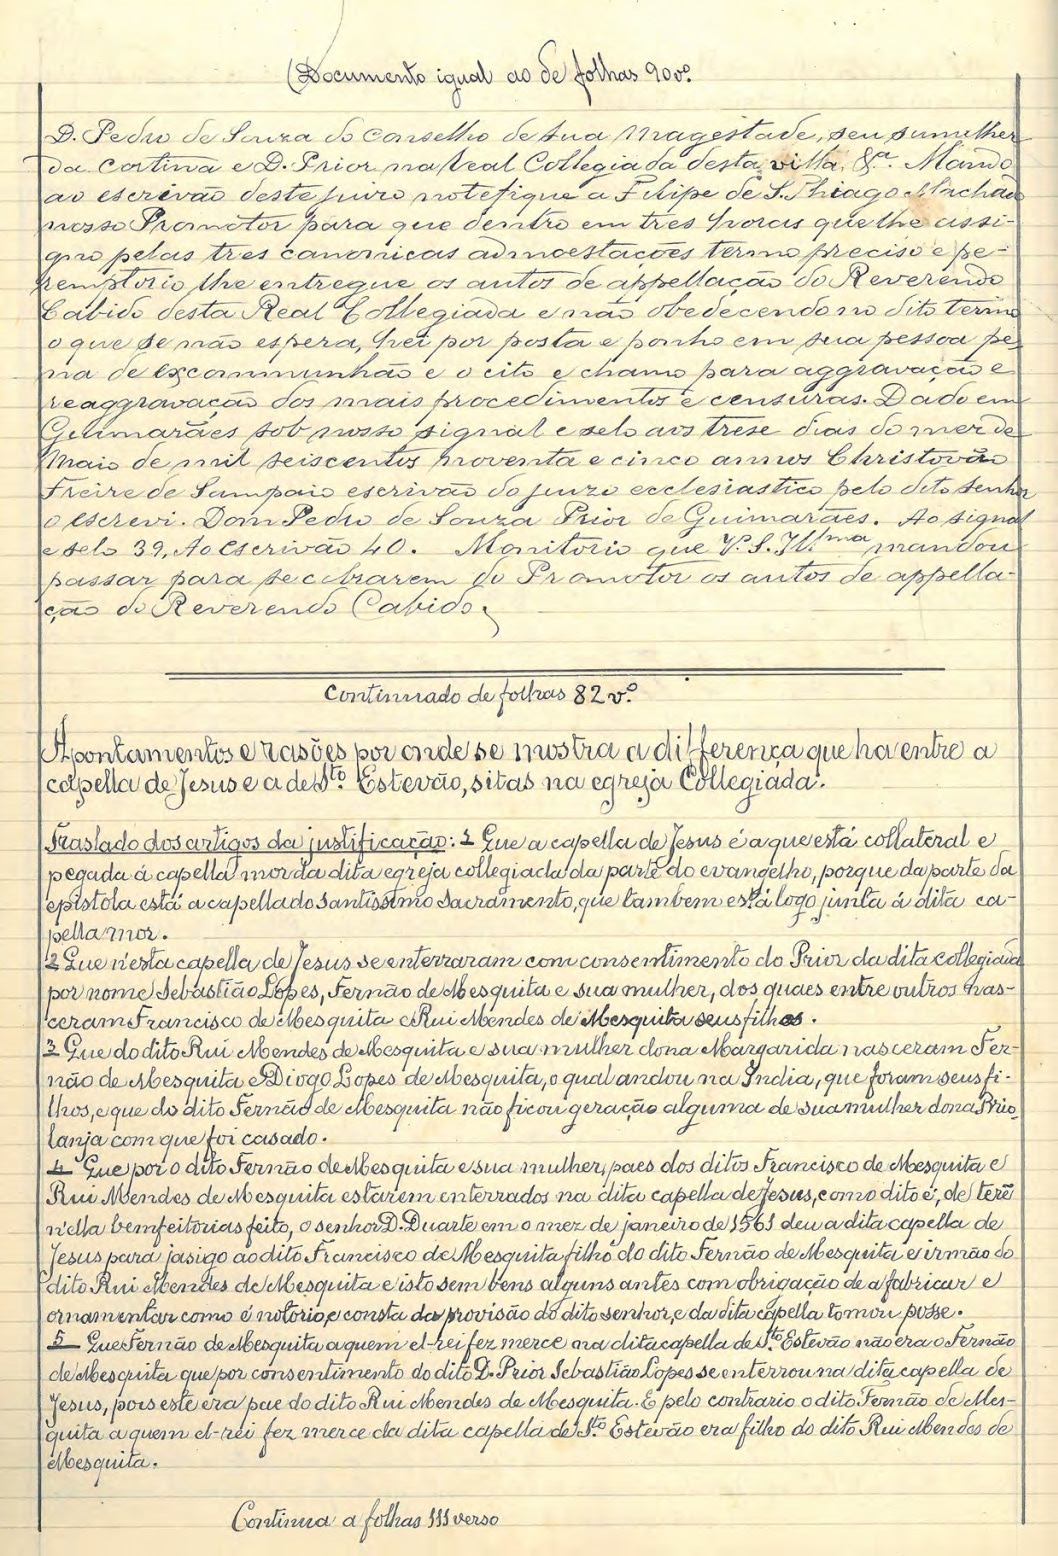 (Documento igual ao de folhas 90 vº.
D. Pedro de Souza do conselho de sua Magestade, seu sumilher
da cortina e D. Prior na Real Collegiada desta villa, &ª. Mando
ao escrivão deste juizo notefique a Filipe de S. Thiago Machado
nosso Promotor para que dentro em tres horas que lhe assi-
gno pelas tres canonicas admoestações termo preciso e pe-
remptorio lhe entregue os autos de appellação do Reverendo
Cabido desta Real Collegiada e não obedecendo no dito termo
o que se não espera, hei por posta e ponho em sua pessoa pe-
na de excommunhão e o cito e chamo para aggravação e
reaggravação dos mais procedimentos e censuras. Dado em
Guimarães sob nosso signal e selo aos trese dias do mez de
Maio de mil seiscentos noventa e cinco annos Christovão
Freire de Sampaio escrivão do juizo ecclesiastico pelo dito senhor
o escrevi. Dom Pedro de Souza Prior de Guimarães. Ao signal
e selo 39, Ao Escrivão 40. Monitorio que V. S. Illma mandou
passar para se cobrarem do Promotor os autos de appella-
ção do Reverendo Cabido.
Continuado de folhas 82 vº.
Apontamentos e rasões por onde se mostra a differença que ha entre a
capella de Jesus e a de Sto. Estevão, sitas na egreja Collegiada.
Traslado dos artigos da justificação: 1 Que a capella de Jesus é a que está collateral e
pegada á capella mor da dita egreja collegiada da parte do evangelho, porque da parte da
epistola está a capella do Santissimo Sacramento, que tambem está logo junta á dita ca-
pella mor.
2 Que n'esta capella de Jesus se enterraram com consentimento do Prior da dita collegiada
por nome Sebastião Lopes, Fernão de Mesquita e sua mulher, dos quaes entre outros nas-
ceram Francisco de Mesquita e Rui Mendes de Mesquita seus filhos.
3 Que do dito Rui Mendes de Mesquita e sua mulher dona Margarida nasceram Fer-
não de Mesquita e Diogo Lopes de Mesquita, o qual andou na India, que foram seus fi-
lhos, e que do dito Fernão de Mesquita não ficou geração alguma de sua mulher dona Brio-
lanja com que foi casado.
4 Que por o dito Fernão de Mesquita e sua mulher, paes dos ditos Francisco de Mesquita e
Rui Mendes de Mesquita estarem enterrados na dita capella de Jesus, como dito é, de terẽ
n'ella bemfeitorias feito, o senhor D. Duarte em o mez de janeiro de 1561 deu a dita capella de
Jesus para jasigo ao dito Francisco de Mesquita filho do dito Fernão de Mesquita e irmão do
dito Rui Mendes de Mesquita e isto sem bens alguns antes com obrigação de a fabricar e
ornamentar como é notorio, e consta da provisão do dito senhor, e da dita capella tomou posse.
5 Que Fernão de Mesquita a quem el-rei fez merce na dita capella de Sto. Estevão não era o Fernão
de Mesquita que por consentimento do dito D. Prior Sebastião Lopes se enterrou na dita capella de
Jesus, pois este era pae do dito Rui Mendes de Mesquita. E pelo contrario o dito Fernão de Mes-
quita a quem el-rei fez merce da dita capella de Sto. Estevão era filho do dito Rui Mendes de
Mesquita.
Continua a folhas 111 verso